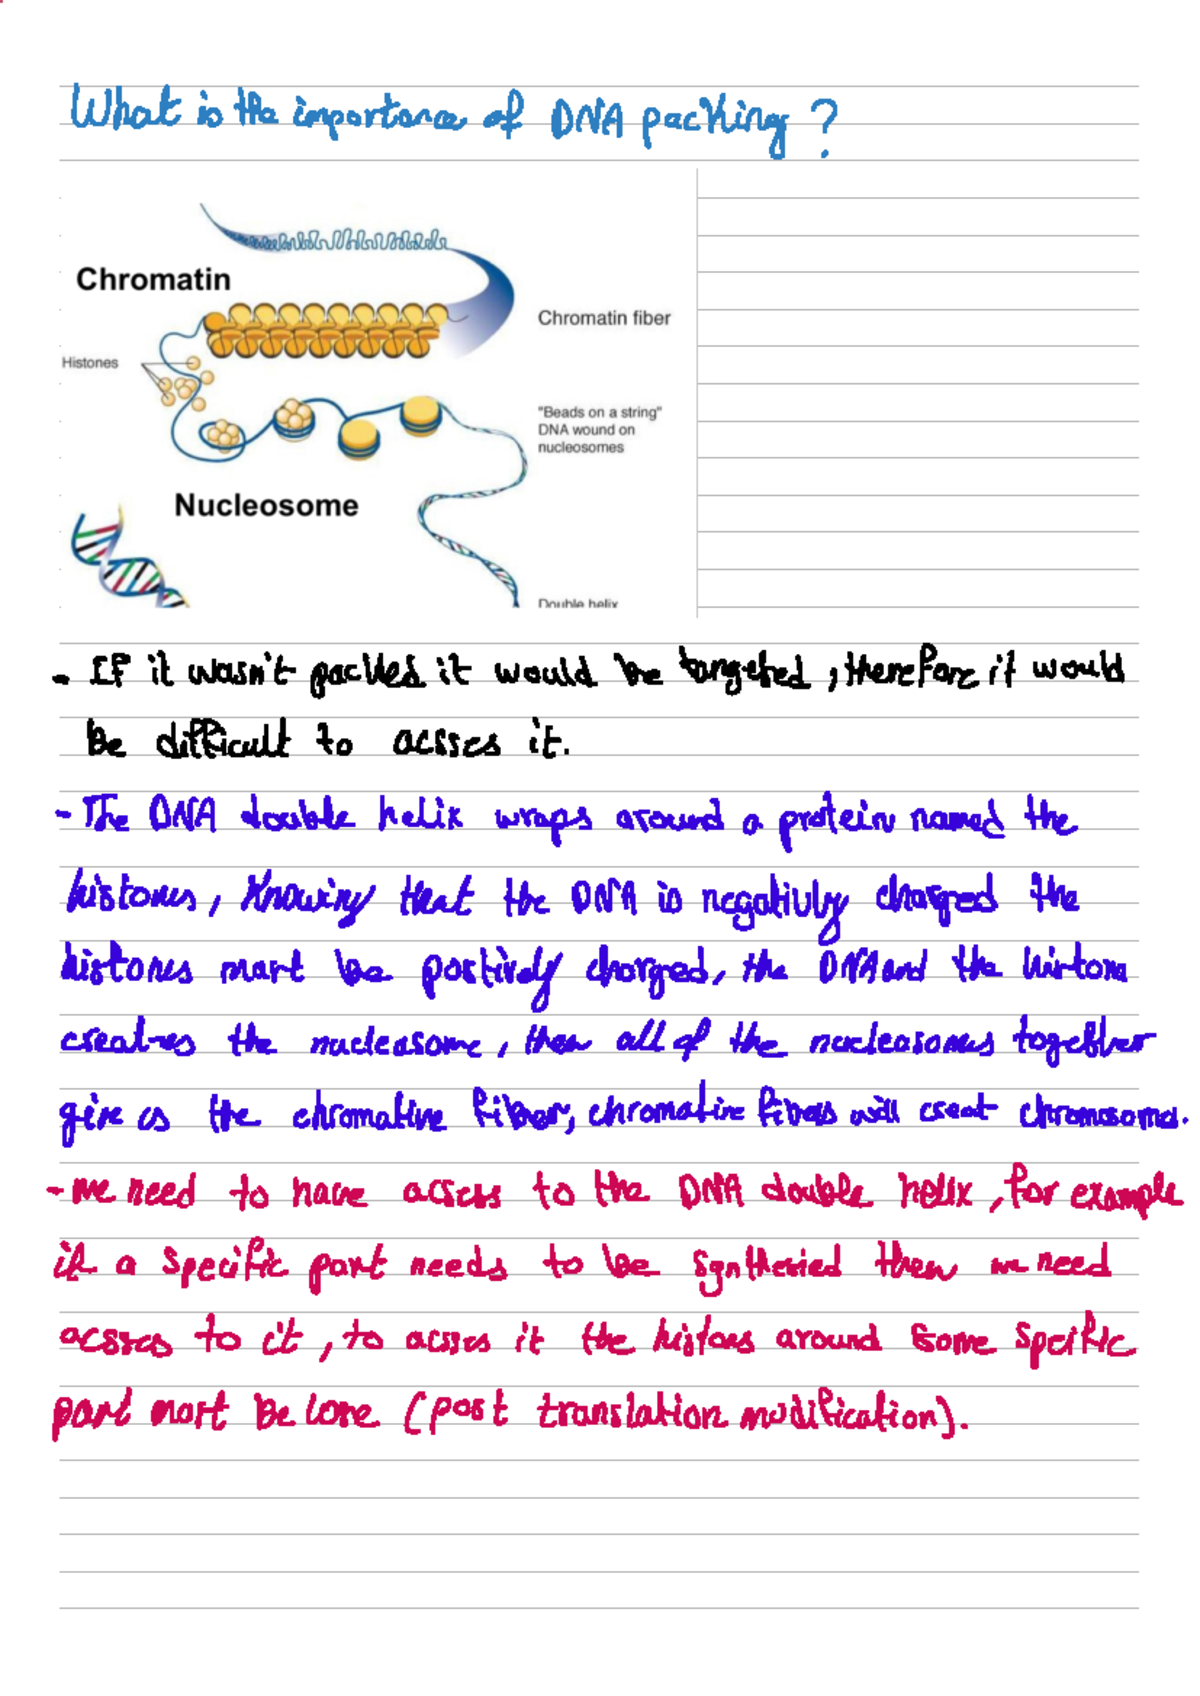 What is the importance of DNA packing?
Chromatin
Chromatin fiber
Histones
"Beads on a string"
DNA wound on
nucleosomes
Nucleosome
Double helix
- If it wasn't packed it would be targeted, therefore it would
be difficult to acsses it.
- The DNA double helix wraps around a protein named the
histones, Knowing that the DNA is negativly charged the
histones must be postively charged, the DNA and the histone
creates the nucleasome, then all of the nucleasomes together
give us the chromative fiber, chromative fibers will creat chromosoma.
- we need to have access to the DNA double helix, for example
if a specific part needs to be synthesied then we need
acsses to it, to acsses it the histons around some speific
part must be lose (post translation modification).